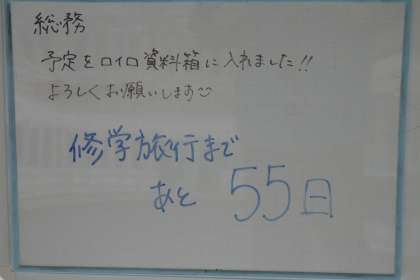 総務
予定をロイロ資料箱に入れました!!
よろしくお願いします
修学旅行まで
あと 55日